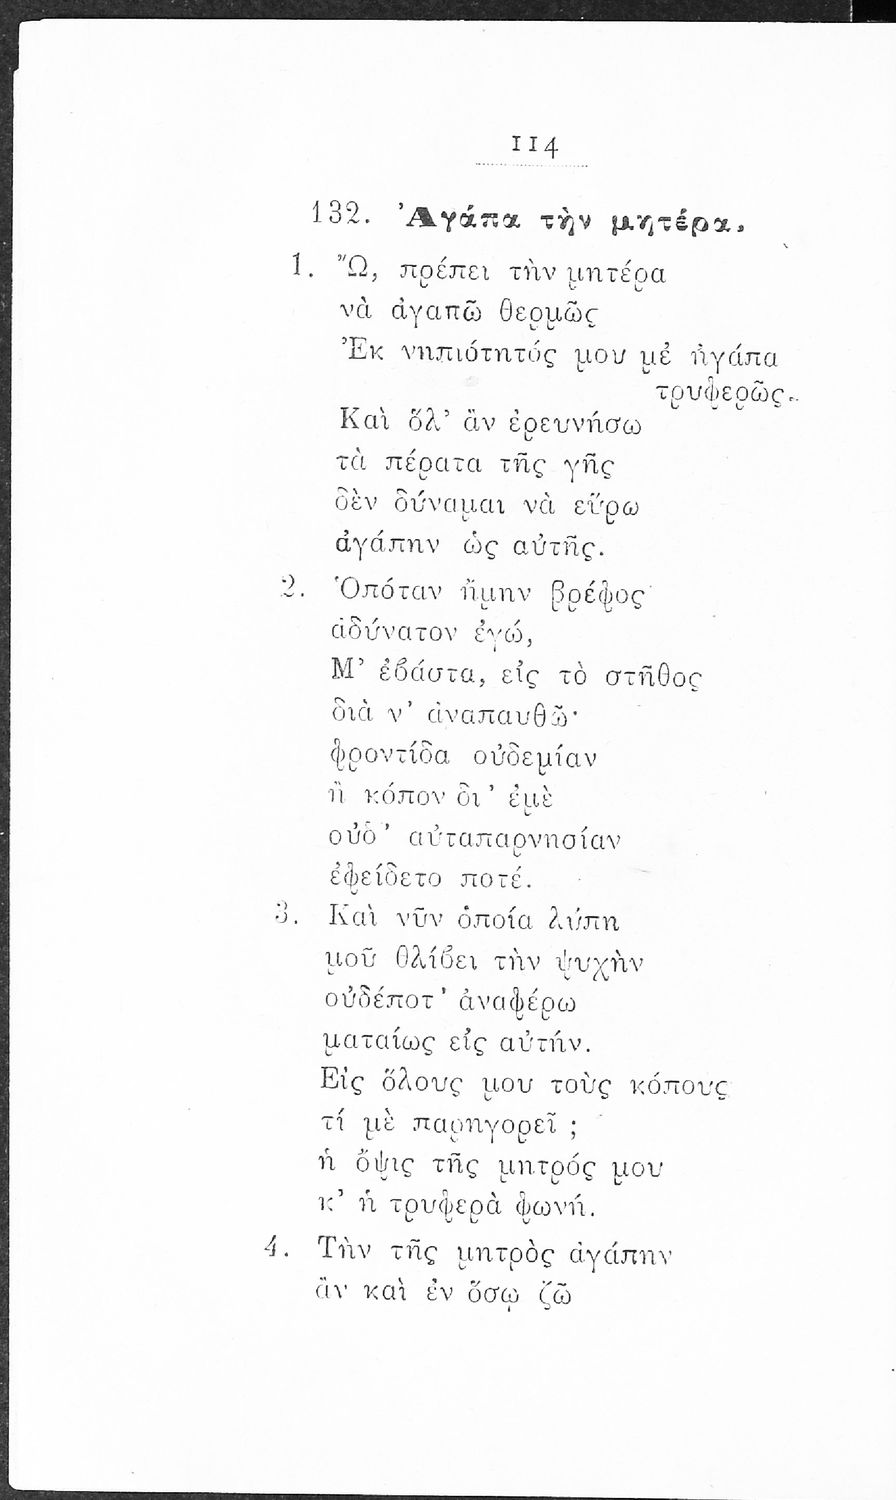 114
132. Ἀγάπα τὴν μητέρα.
1. Ὤ, πρέπει τὴν μητέρα
νὰ ἀγαπῶ θερμῶς
Ἐκ νηπιότητός μου μἐ ἠγάπα
τρυφερῶς.
Καὶ ὅλ’ ἂν ἐρευνήσω
τὰ πέρατα τῆς γῆς
δὲν δύναμαι νὰ εὕρω
ἀγάπην ὡς αὐτῆς.
2. Ὁπόταν ἤμην βρέφος
ἀδύνατον ἐγώ,
Μ’ ἐβάστα, εἰς τὸ στῆθος
διὰ ν’ ἀναπαυθῶ·
φροντίδα οὐδεμίαν
ἢ κόπον δι’ ἐμὲ
οὐδ’ αὐταπαρνησίαν
ἐφείδετο ποτέ.
3. Καὶ νῦν ὁποία λύπη
μοῦ θλίβει τὴν ψυχὴν
οὐδέποτ’ ἀναφέρω
ματαίως εἰς αὐτήν.
Εἰς ὅλους μου τοὺς κόπους
τί μὲ παρηγορεῖ ;
ἡ ὄψις τῆς μητρός μου
κ’ ἡ τρυφερὰ φωνή.
4. Τὴν τῆς μητρὸς ἀγάπην
ἂν καὶ ἐν ὅσῳ ζῶ